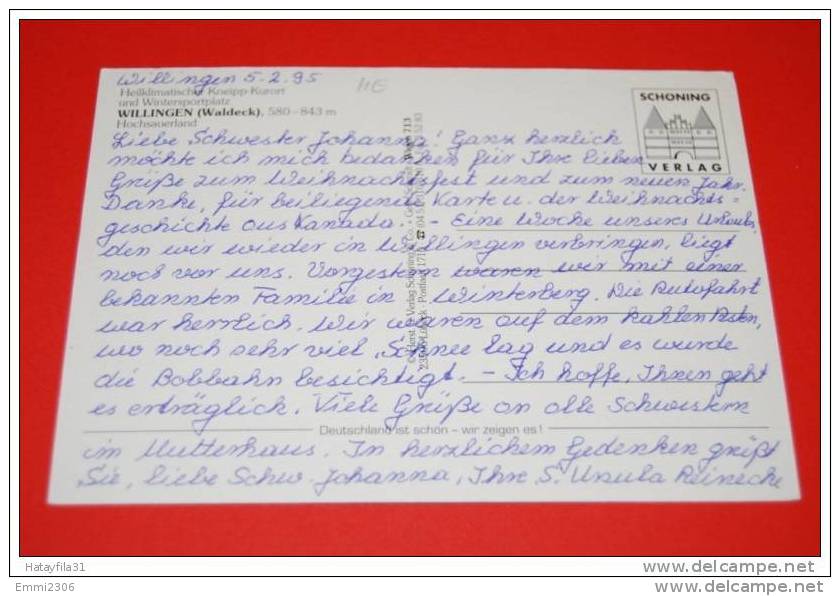 Willingen 5.2.95
Heilklimatischer Kneipp-Kurort
und Wintersportplatz
WILLINGEN (Waldeck), 580–843 m
Hochsauerland
SCHÖNING
VERLAG
Liebe Schwester Johanna! Ganz herzlich
möchte ich mich bedanken für Ihre lieben
Grüße zum Weihnachtsfest und zum neuen Jahr.
Danke, für beiliegende Karte u. der Weihnachts=
geschichte aus Kanada. – Eine Woche unseres Urlaubs,
den wir wieder in Willingen verbringen, liegt
noch vor uns. Vorgestern waren wir mit einer
bekannten Familie in Winterberg. Die Autofahrt
war herrlich. Wir waren auf dem kahlen Asten,
wo noch sehr viel Schnee lag und es wurde
die Bobbahn besichtigt. – Ich hoffe, Ihnen geht
es erträglich. Viele Grüße an alle Schwestern
Deutschland ist schön – wir zeigen es!
im Mutterhaus. In herzlichem Gedenken grüßt
Sie, liebe Schw. Johanna, Ihre S. Ursula Reinecke
Hatayfila31
www.delcampe.net
Emmi2306
www.delcampe.net